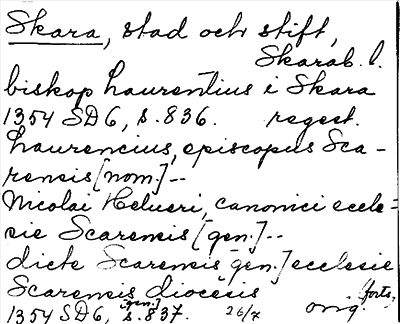 Skara, stad och stift,
Skarab. l.
biskop Laurentius i Skara
1354 SD6, s. 836. regest.
Laurencius, episcopus Sca-
rensis [nom] --
Nicolai Helueri, canonici eccle-
sie Scarensis [gen.] --
dicte Scarensis [gen.] ecclesie
Scarensis diocesis [gen.] forts.
1354 SD6, s. 837. 26/7 orig.